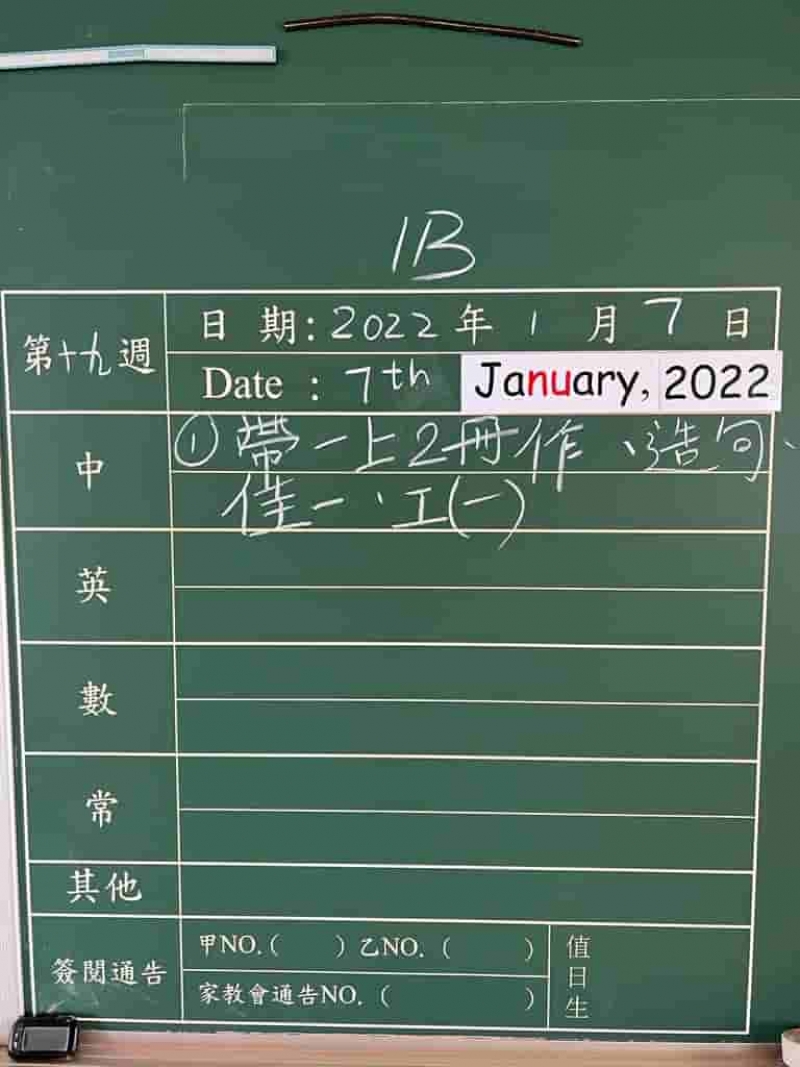 1B
第十九週
日 期: 2022 年 1 月 7 日
Date : 7th January, 2022
中
①帶一上2冊作、造句、
佳一、工(一)
英
數
常
其他
簽閱通告
甲NO.( ) 乙NO. ( )
家教會通告NO. ( )
值日生